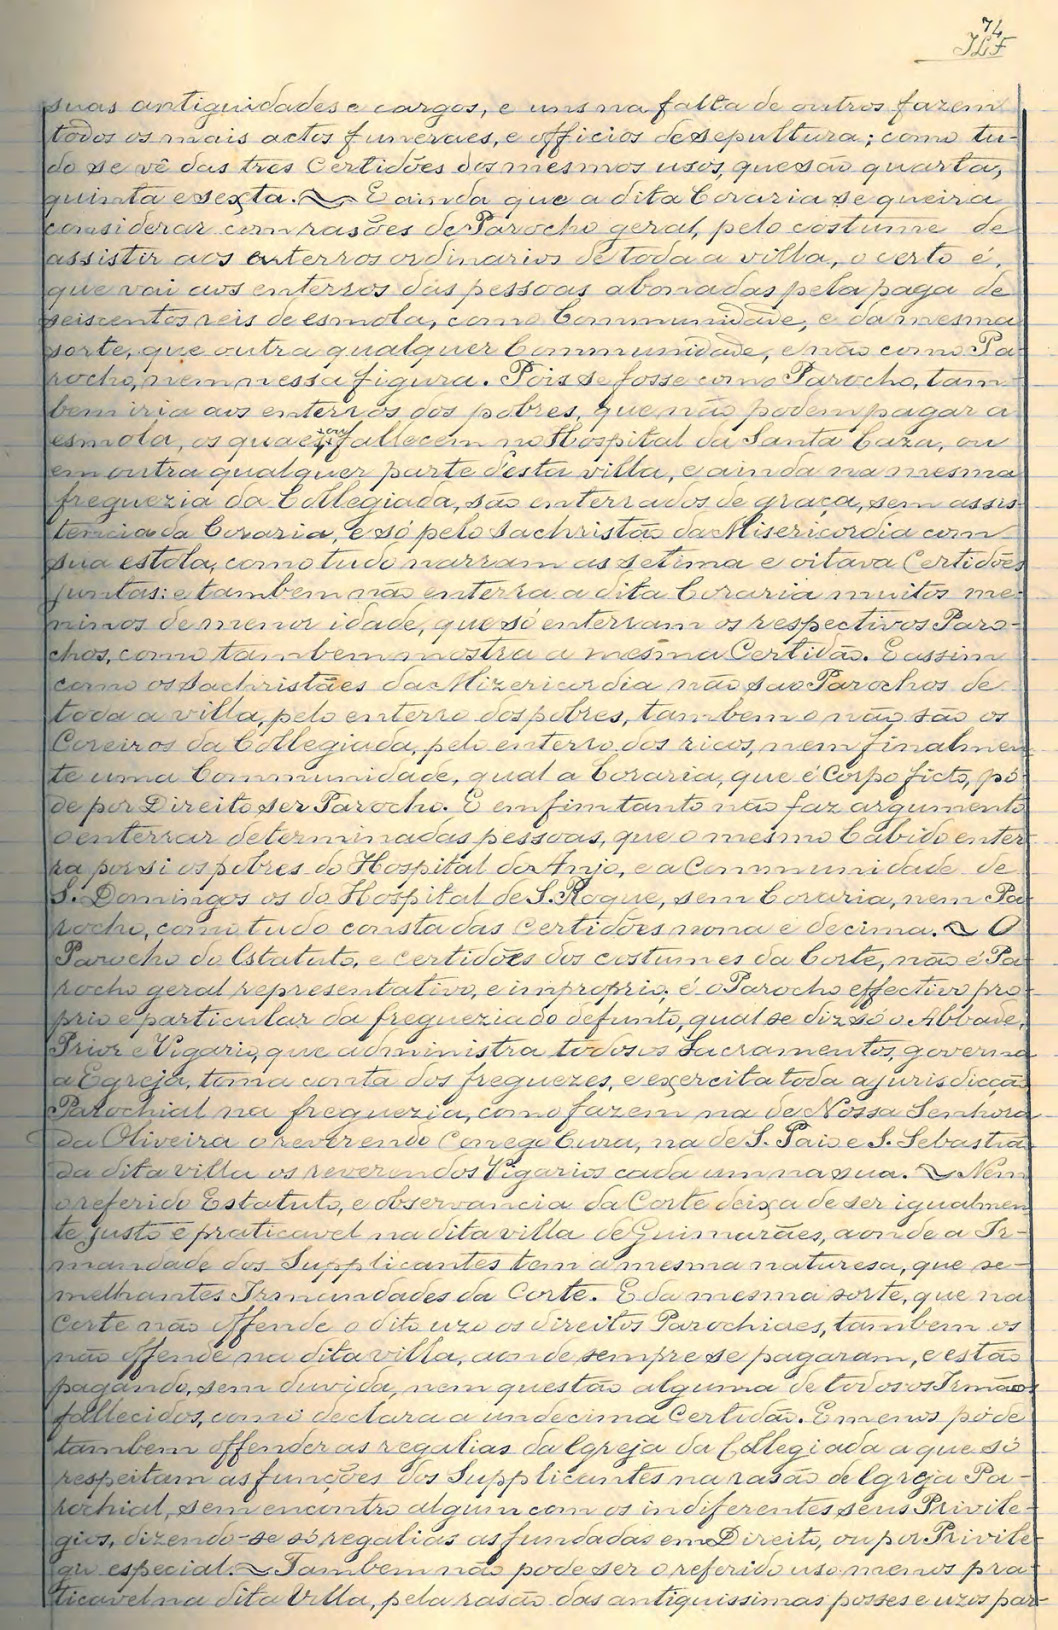 74
JLF
suas antiguidades e cargos, e uns na falta de outros fazem
todos os mais actos funeraes, e officios de sepultura; como tu-
do se vê das tres Certidões dos mesmos usos, que são quarta,
quinta e sexta. ~ E ainda que a dita Coraria se queira
considerar com rasões de Parocho geral, pelo costume de
assistir aos enterros ordinarios de toda a villa, o certo é,
que vai aos enterros das pessoas abonadas pela paga de
seiscentos reis de esmola, como Communidade, e da mesma
sorte, que outra qualquer Communidade, e não como Pa-
rocho, nem nessa figura. Pois se fosse como Parocho, tam-
bem iria aos enterros dos pobres, que não podem pagar a
esmola, os quaes, ou fallecem no Hospital da Santa Caza, ou
em outra qualquer parte d'esta villa, e ainda na mesma
freguezia da Collegiada, são enterrados de graça, sem assis-
tencia da Coraria, e só pelo Sachristão da Misericordia com
sua estola, como tudo narram as setima e oitava Certidões
juntas: e tambem não enterra a dita Coraria muitos me-
ninos de menor idade, que só enterram os respectivos Paro-
chos, como tambem mostra a mesma Certidão. E assim
como os Sachristães da Mizericordia não são Parochos de
toda a villa, pelo enterro dos pobres, tambem o não são os
Coreiros da Collegiada, pelo enterro dos ricos, nem finalmen-
te uma Communidade, qual a Coraria, que é Corpo ficto, pó-
de por Direito ser Parocho. E emfim tanto não faz argumento
o enterrar determinadas pessoas, que o mesmo Cabido enter-
ra por si os pobres do Hospital do Anjo, e a Communidade de
S. Domingos os do Hospital de S. Roque, sem Coraria, nem Pa-
rocho, como tudo consta das Certidões nona e decima. ~ O
Parocho do Estatuto, e certidões dos costumes da Corte, não é Pa-
rocho geral representativo, e improprio; é o Parocho effectivo pro-
prio e particular da freguezia do defunto, qual se diz só o Abbade,
Prior e Vigario, que administra todos os Sacramentos, governa
a Egreja, toma conta dos freguezes, e exercita toda a jurisdicção
Parochial na freguezia, como fazem na de Nossa Senhora
da Oliveira o reverendo Conego Cura, na de S. Paio e S. Sebastião
da dita villa os reverendos Vigarios cada um na sua. ~ Nem
o referido Estatuto, e observancia da Corte deixa de ser igualmen-
te justo e praticavel na dita villa de Guimarães, aonde a Ir-
mandade dos Supplicantes tem a mesma naturesa, que se-
melhantes Irmandades da Corte. E da mesma sorte, que na
Corte não offende o dito uzo os direitos Parochiaes, tambem os
não offende na dita villa, aonde sempre se pagaram, e estão
pagando, sem duvida, nem questão alguma de todos os Irmãos
fallecidos, como declara a undecima Certidão. E menos póde
tambem offender as regalias da Egreja da Collegiada a que só
respeitam as funções dos Supplicantes na rasão de Egreja Pa-
rochial, sem encontro algum com os indiferentes seus Privile-
gios, dizendo-se só regalias as fundadas em Direito, ou por Privile-
gio especial. ~ Tambem não pode ser o referido uso menos pra-
ticavel na dita Villa, pela rasão das antiquissimas posses e uzos par-